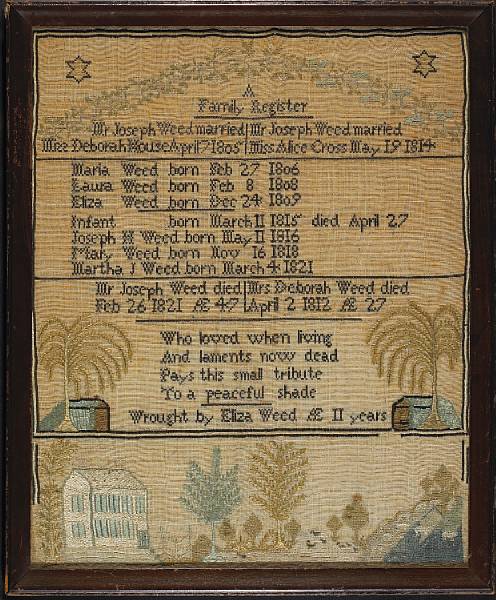 A
Family Register
Mr Joseph Weed married Mr Joseph Weed married
Miss Deborah House April 7 1805 Miss Alice Cross May 19 1814
Maria Weed born Feb 27 1806
Laura Weed born Feb 8 1808
Eliza Weed born Dec 24 1809
Infant born March 11 1815 died April 27
Joseph H Weed born May 11 1816
Mary Weed born Nov 16 1818
Martha J Weed born March 4 1821
Mr Joseph Weed died Mrs Deborah Weed died
Feb 26 1821 Æ 47 April 2 1812 Æ 27
Who loved when living
And laments now dead
Pays this small tribute
To a peaceful shade
Wrought by Eliza Weed Æ 11 years